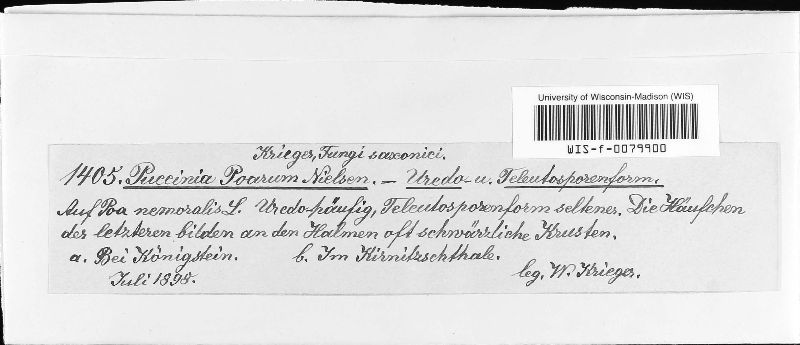 University of Wisconsin-Madison (WIS)
WIS-f-0079900
Krieger, Fungi saxonici.
1405. Puccinia Poarum Nielsen. — Uredo- u. Teleutosporenform.
Auf Poa nemoralis L. Uredo häufig, Teleutosporenform seltener. Die Häufchen
der letzteren bilden an den Halmen oft schwärzliche Krusten.
a. Bei Königstein. b. Im Kirnitzschthale.
Juli 1898. leg. W. Krieger.